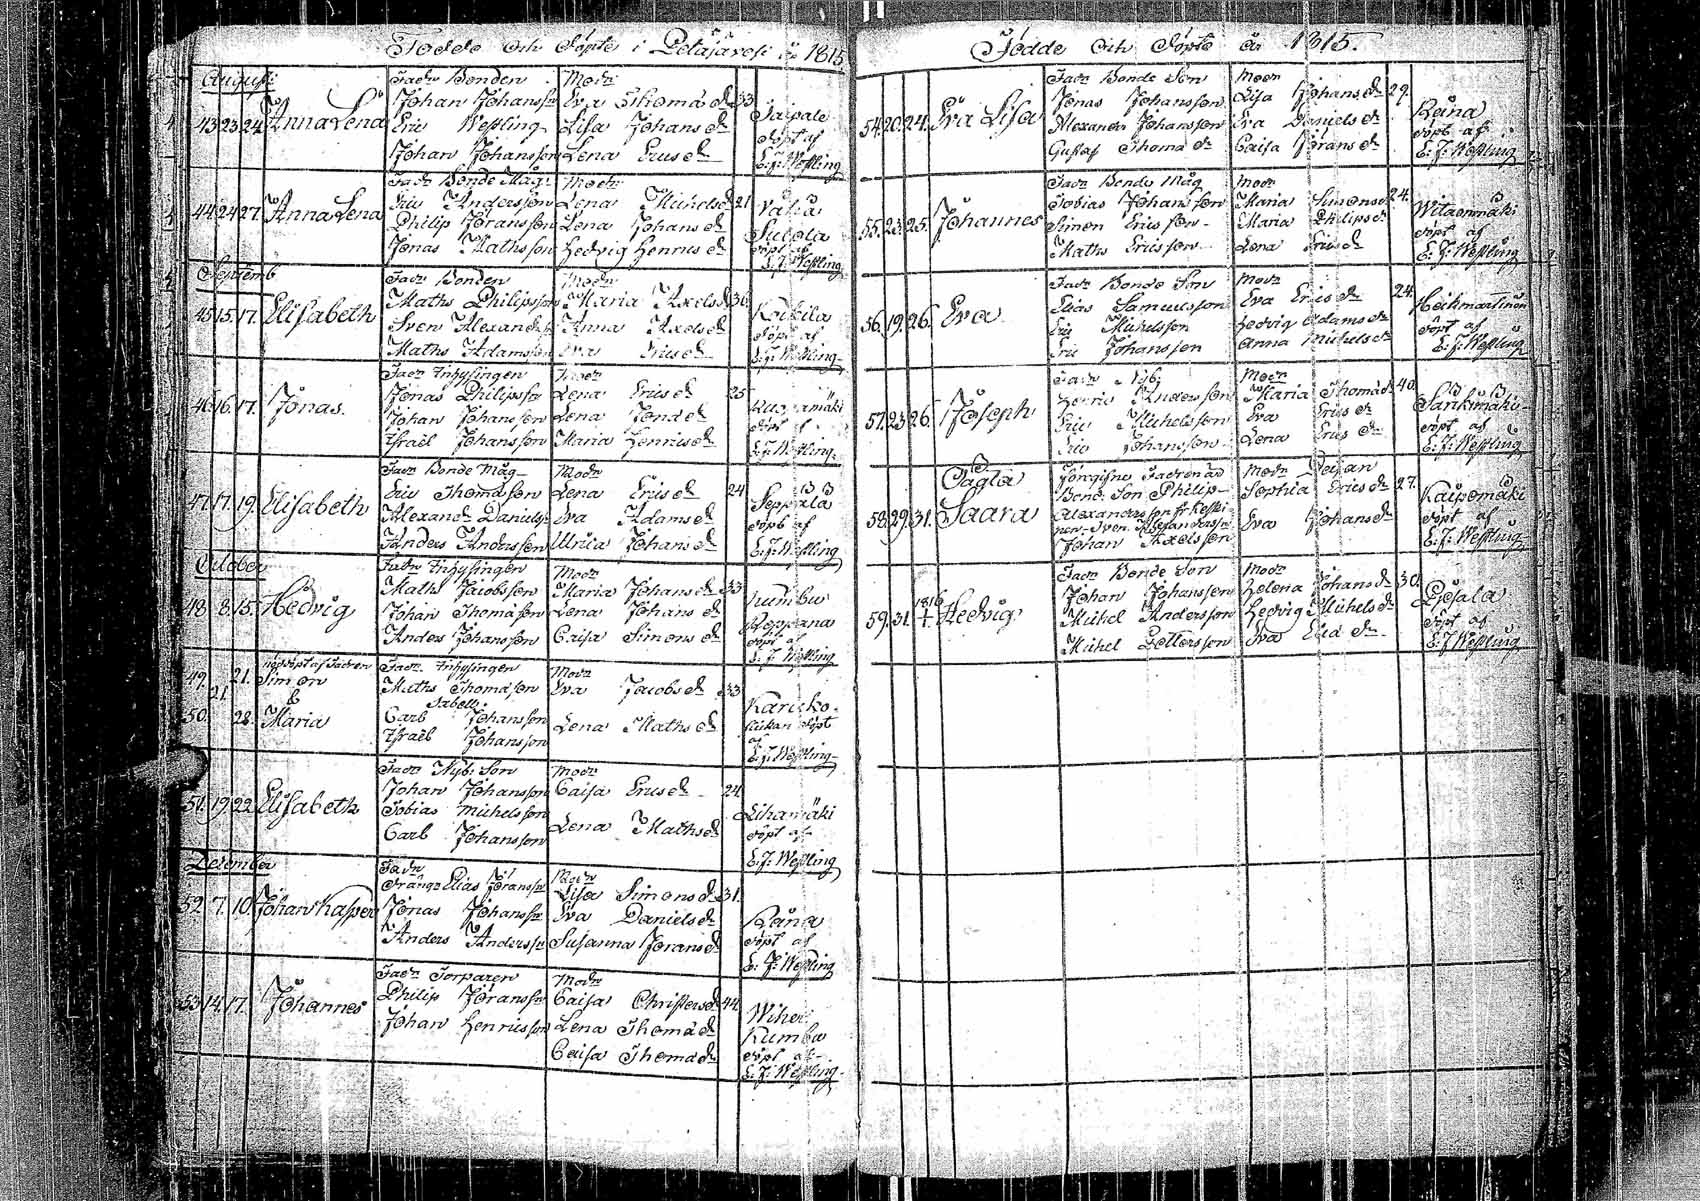 Födde och Döpte i Petäjäveſi år 1815
Augusti
43. 23. 24. Anna Lena
Fadr Bonden
Johan Johansson
Eric Weſsling
Johan Johansson
Modr
Eva Thomæ dr 33
Lisa Johans dr
Lena Erics dr
Taipale
döpt af
E: J: Weſsling
44. 24. 27. Anna Lena
Fadr Bonde Måg:
Eric Andersson
Philip Jöransson
Jonas Mathsson
Modr
Lena Michelsdr 21
Lena Johans dr
Hedvig Henrics dr
Döpt af
E: J: Weſsling
Septemb
45. 15. 17. Elisabeth
Fadr Bonden
Maths Philipsson
Sven Alexanders
Maths Adamsson
Modr
Maria Axels dr 36
Anna Axels dr
Eva Erics dr
Kukila
döpt af
E: J: Weſsling
46. 16. 17. Jonas.
Fadr Inhysingen
Jonas Philipsson
Johan Johansson
Israël Johansson
Modr
Lena Erics dr 25
Lena
Maria Henrics dr
döpt af
E: J: Weſsling
47. 17. 19. Elisabeth
Fadr Bonde Måg
Eric Thomasson
Alexandr Daniels
Anders Andersson
Modr
Lena Erics dr 24
Eva Adams dr
Ulrica Johans dr
Seppälä
döpt af
E: J: Weſsling
October
48. 8. 15. Hedvig
Fadr Inhysingen
Maths Jacobsson
Johan Thomasson
Anders Johansson
Modr
Maria Johans dr 33
Lena Johans dr
Caisa Simons dr
Kumbu
döpt af
E: J: Weſsling
49. 21. 21. nöddöpt af Fadren
Simon
&
50. 28. Maria
Fadr Inhysingen
Maths Thomasson
Carl Johansson
Israël Johansson
Modr
Eva Jacobs dr 33
Lena Maths dr
döpt
af
E: J: Weſsling
51. 19. 22. Elisabeth
Fadr Nyb: Son
Johan Johansson
Tobias Michelsson
Carl Johansson
Modr
Caisa Erics dr 24
Lena Maths dr
Lihamäki
döpt af
E: J: Weſsling
December
52. 7. 10. Johan Kasper
Fadr
Elias Jöransson
Jonas Johansson
Anders Andersson
Modr
Lisa Simons dr 31.
Eva Daniels dr
Susanna Jörans dr
Räna
döpt af
E: J: Weſsling
53. 14. 17. Johannes
Fadr Torparen
Philip Jöransson
Johan Henricsson
Modr
Caisa Christers dr 44
Lena Thomæ dr
Caisa Thomæ dr
Wiher
Kumbu
döpt af
E: J: Weſsling
Födde och Döpte år 1815.
54. 20. 24. Eva Lisa
Fadr Bonde Son
Jonas Johansson
Alexander Johansson
Gustaf Thomæ dr
Modr
Lisa Johans dr 29.
Eva Daniels dr
Caisa Jörans dr
Räna
döpt af
E: J: Weſsling
55. 23. 25. Johannes
Fadr Bonde Måg
Tobias Johansson
Simon Ericsson
Maths Ericsson
Modr
Maria Simons dr 24.
Maria Philips dr
Lena Erics dr
döpt af
E: J: Weſsling
56. 19. 26. Eva
Fadr Bonde Son
Elias Samuelsson
Eric Michelsson
Eric Johansson
Modr
Eva Erics dr 24.
Hedvig Adams dr
Anna Michels dr
döpt af
E: J: Weſsling
57. 23. 26. Joseph
Fadr Nyb:
Henric Andersson
Eric Michelsson
Eric Johansson
Modr
Maria Thomæ dr 40.
Eva Erics dr
Lena Erics dr
döpt af
E: J: Weſsling
58. 29. 31. Saara
Fadren är
Bond: Son Philip
Alexandersson fr Keski
Sven Alexandersson
Johan Axelsson
Modr
Sophia Erics dr 27.
Eva Johans dr
döpt af
E: J: Weſsling
59. 31. 1816 1. Hedvig
Fadr Bonde Son
Johan Johansson
Michel Andersson
Michel Pettersson
Modr
Helena Johans dr 30.
Hedvig Michels dr
Eva
döpt af
E: J: Weſsling